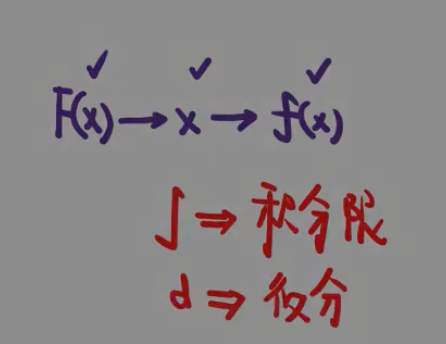 ✓ ✓ ✓
F(x) → x → f(x)
∫ ⇒ 积分限
d ⇒ 微分